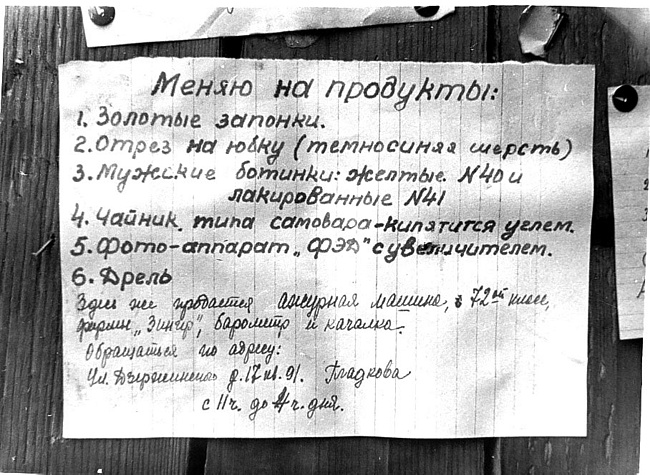 Меняю на продукты:
1. Золотые запонки.
2. Отрез на юбку (темносиняя шерсть)
3. Мужские ботинки: желтые N40 и
лакированные N41
4. Чайник типа самовара-кипятится углем.
5. Фото-аппарат „ФЭД" с увеличителем.
6. Дрель
Здесь же продается ажурная машина, 72ой класс,
фирмы „Зингер", барометр и качалка.
Обращаться по адресу:
Ул. Дзержинского д.17 кв. 91. Гладкова
с 11ч. до 4ч. дня.